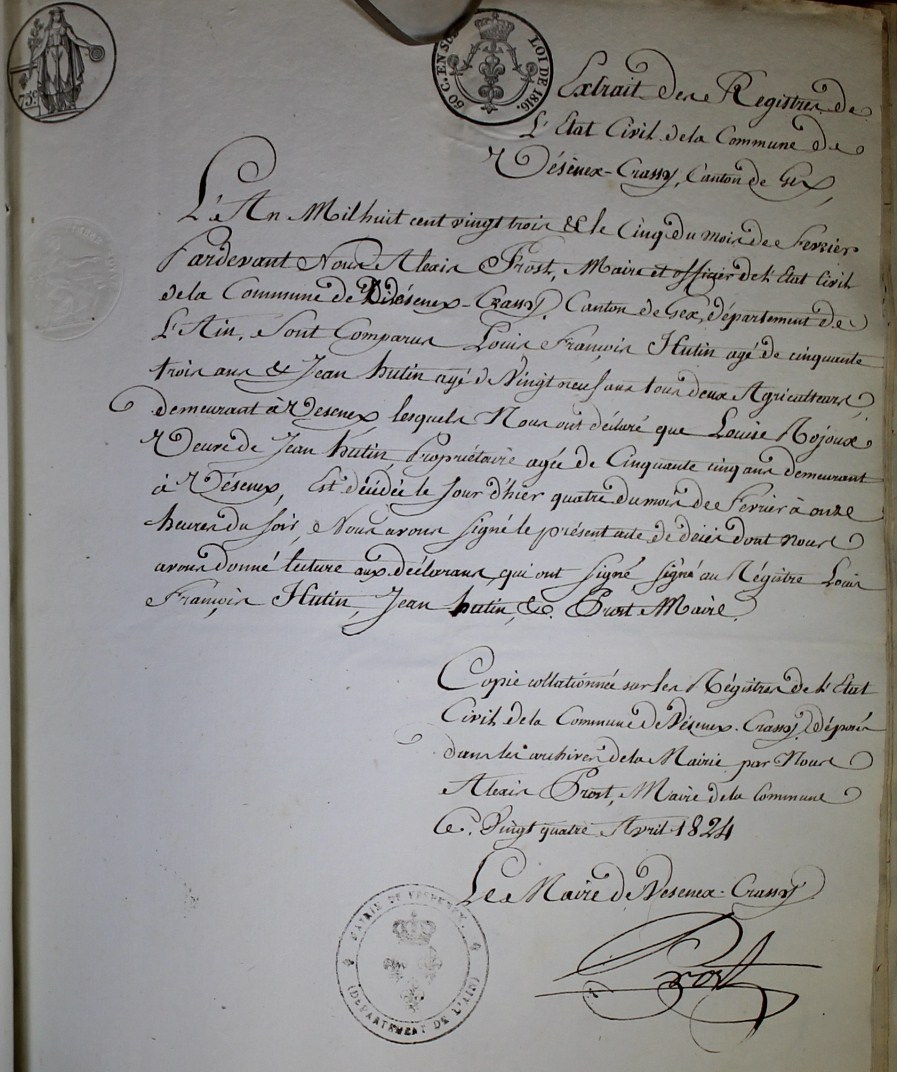 75 c
50 C. EN SUS
LOI DE 1816.
Extrait des Registres de
L'Etat Civil de la Commune de
Vésenex-Crassy, Canton de Gex,
L'An Mil huit cent vingt trois & le Cinq du mois de Fevrier
Pardevant Nous Alexis Prost, Maire et officier de l'Etat Civil
de la Commune de Vésenex-Crassy, Canton de Gex, département de
L'Ain, Sont Comparus Louis François Hutin agé de cinquante
trois ans & Jean hutin agé de Vingt neuf ans tous deux Agriculteurs,
demeurant à Vesenex lesquels Nous ont déclaré que Louise Rojoux
Veuve de Jean hutin Propriétaire agée de Cinquante cinq ans demeurant
à Vésenex, Est décédée le Jour d'hier quatre du mois de Fevrier à onze
heures du soir, & Nous avons Signé le présent acte de décès dont nous
avons donné lecture aux déclarans qui ont Signé Signé au Régistre Louis
François Hutin, Jean hutin, & Prost Maire
Copie collationnée sur les Régistres de l'Etat
Civil de la Commune de Vésenex-Crassy, déposés
dans les archives de la Mairie par Nous
Alexis Prost, Maire de la Commune
Ce Vingt quatre Avril 1824
Le Maire de Vesenex-Crassy
Prost
MAIRIE DE VESENEX
(DEPARTEMENT DE L'AIN)